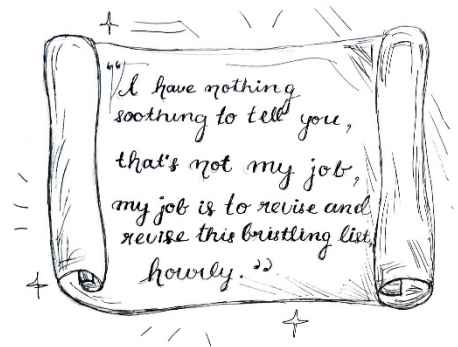 "I have nothing
soothing to tell you,
that's not my job,
my job is to revise and
revise this bristling list,
hourly."